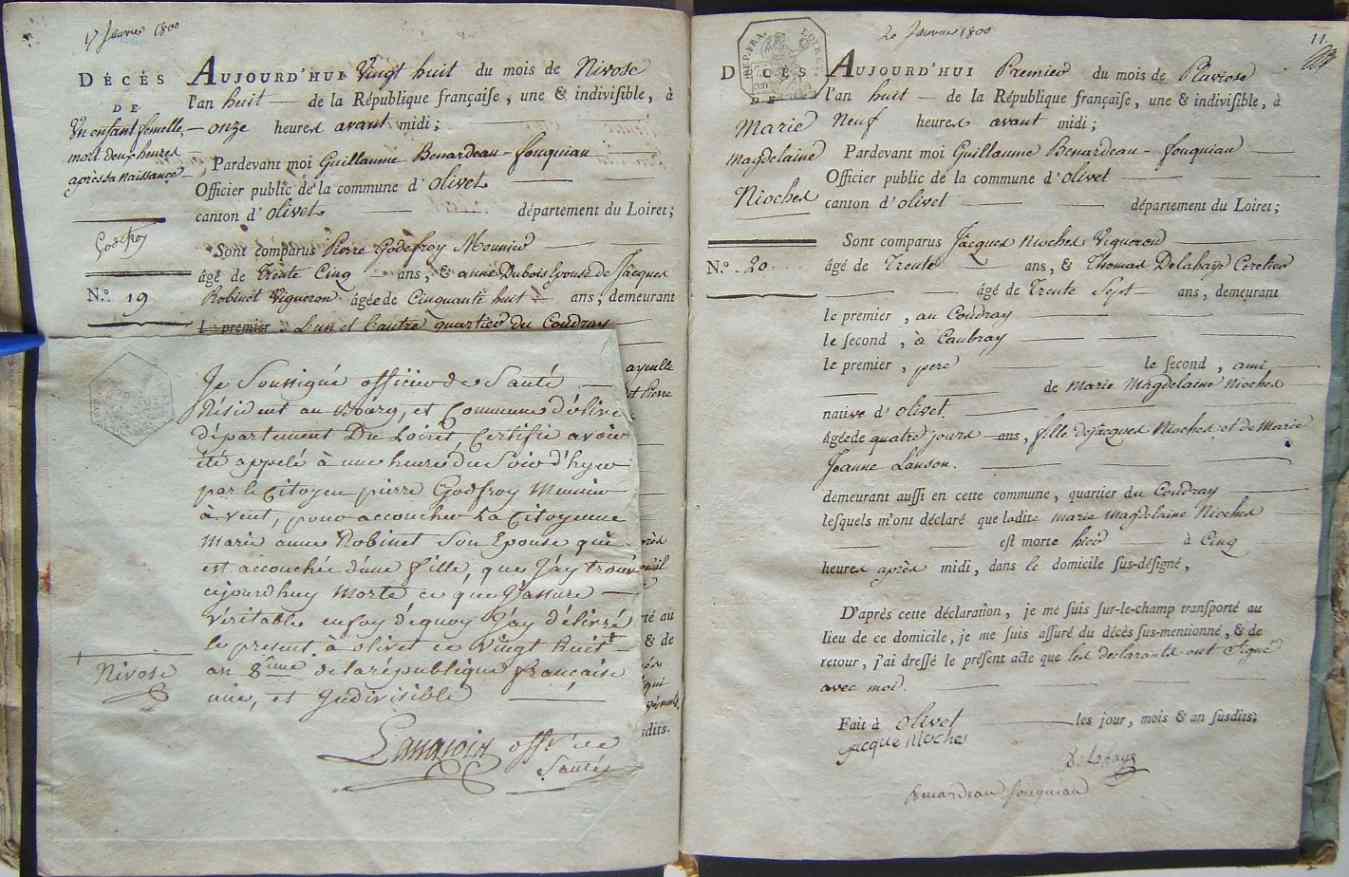 17 Janvier 1800
DÉCÈS
DE
Un enfant femelle
mort deux heures
après sa naissance
Godefroy
N.º 19
AUJOURD'HUI Vingt huit du mois de Nivose
l'an huit de la République françaiſe, une & indiviſible, à
onze heures avant midi;
Pardevant moi Guillaume Benardeau-fouquiau
Officier public de la commune d'olivet
canton d'olivet département du Loiret;
Sont comparus Pierre Godefroy Meunier
âgé de Trente Cinq ans, & anne Dubois Epouse de Jacques
Robinet Vigneron âgée de Cinquante huit ans, demeurant
le premier, L'un et l'autre quartier du Coudray
ayeulle
et Pierre
té au
& de
qui
sdits.
Je Soussigné officier de Santé
Résident au Bourg, et Commune d'olivet
département Du Loiret, Certifie avoir
été appelé à une heure du Soir d'hyer
par le Citoyen pierre Godfroy Meunier
à vent, pour accoucher la Citoyenne
Marie anne Robinet Son Epouse qui
est accouchée d'une fille, que J'ay trouvé
cejourd'huy morte ce que J'assure
Véritable en foy de quoy J'ay délivré
le present à olivet ce Vingt huit
Nivose
an 8ème de la république française
une, et Jndivisible
Off. de
Santé
20 Janvier 1800
11.
REP. FRA. LOIRET
DÉCÈS
DE
Marie
Magdelaine
Nioches
N.º 20
AUJOURD'HUI Premier du mois de Pluviose
l'an huit de la République françaiſe, une & indiviſible, à
Neuf heures avant midi;
Pardevant moi Guillaume Benardeau-fouquiau
Officier public de la commune d'olivet
canton d'olivet département du Loiret;
Sont comparus Jacques Nioches Vigneron
âgé de Trente ans, & Thomas Delahaye
âgé de Trente Sept ans, demeurant
le premier, au Coudray
le ſecond, à Caubray
le premier, pere le ſecond, ami
de Marie Magdelaine Nioches
native d'olivet.
âgée de quatre jours ans, fille de Jacques Nioches et de Marie
Jeanne Lanson.
demeurant auſſi en cette commune, quartier du Coudray
leſquels m'ont déclaré que ladite marie magdelaine Nioches
est morte hier à Cinq
heures après midi, dans le domicile ſus-déſigné,
D'après cette déclaration, je me ſuis ſur-le-champ tranſporté au
lieu de ce domicile, je me ſuis aſſuré du décès ſus-mentionné, & de
retour, j'ai dreſſé le préſent acte que les declarants ont Signé
avec moi.
Fait à olivet les jour, mois & an ſusdits;
jacque Nioches
Delahaye
Benardeau fouquiau